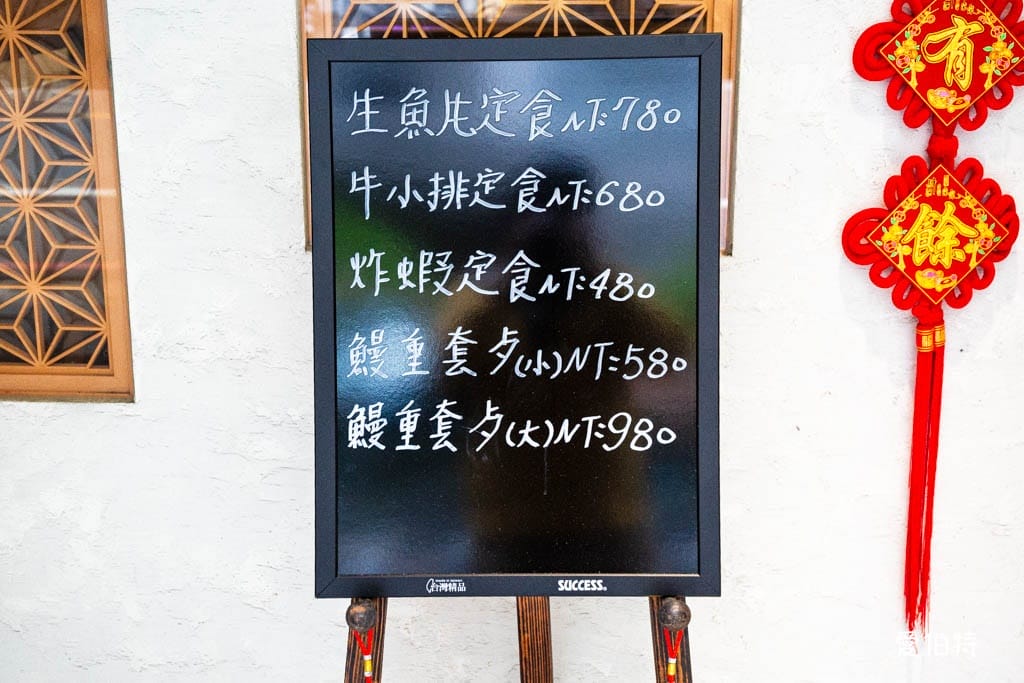 生魚片定食NT:780
牛小排定食NT:680
炸蝦定食NT:480
鰻重套夕(小)NT:580
鰻重套夕(大)NT:980
台灣精品
SUCCESS®
有
餘
愛伯特